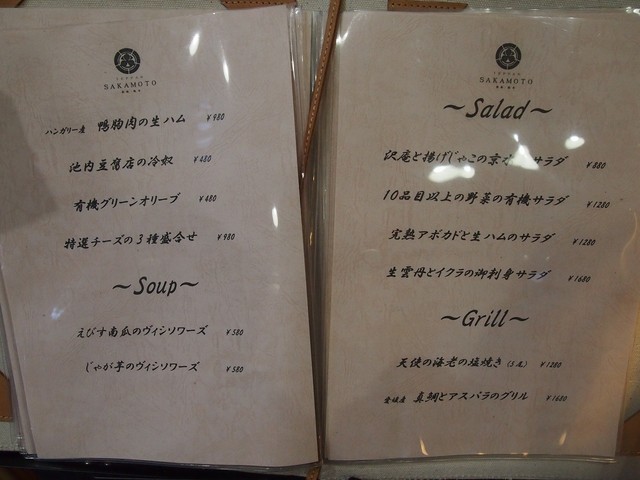 SAKAMOTO
ハンガリー産 鴨胸肉の生ハム ¥980
池内豆腐店の冷奴 ¥480
有機グリーンオリーブ ¥480
特選チーズの3種盛合せ ¥980
～Soup～
えびす南瓜のヴィシソワーズ ¥580
じゃが芋のヴィシソワーズ ¥580
SAKAMOTO
～Salad～
沢庵と揚げじゃこの京 サラダ ¥880
10品目以上の野菜の有機サラダ ¥1280
完熟アボカドと生ハムのサラダ ¥1280
生雲丹とイクラの御刺身サラダ ¥1680
～Grill～
天使の海老の塩焼き (5尾) ¥1280
愛媛産 真鯛とアスパラのグリル ¥1680